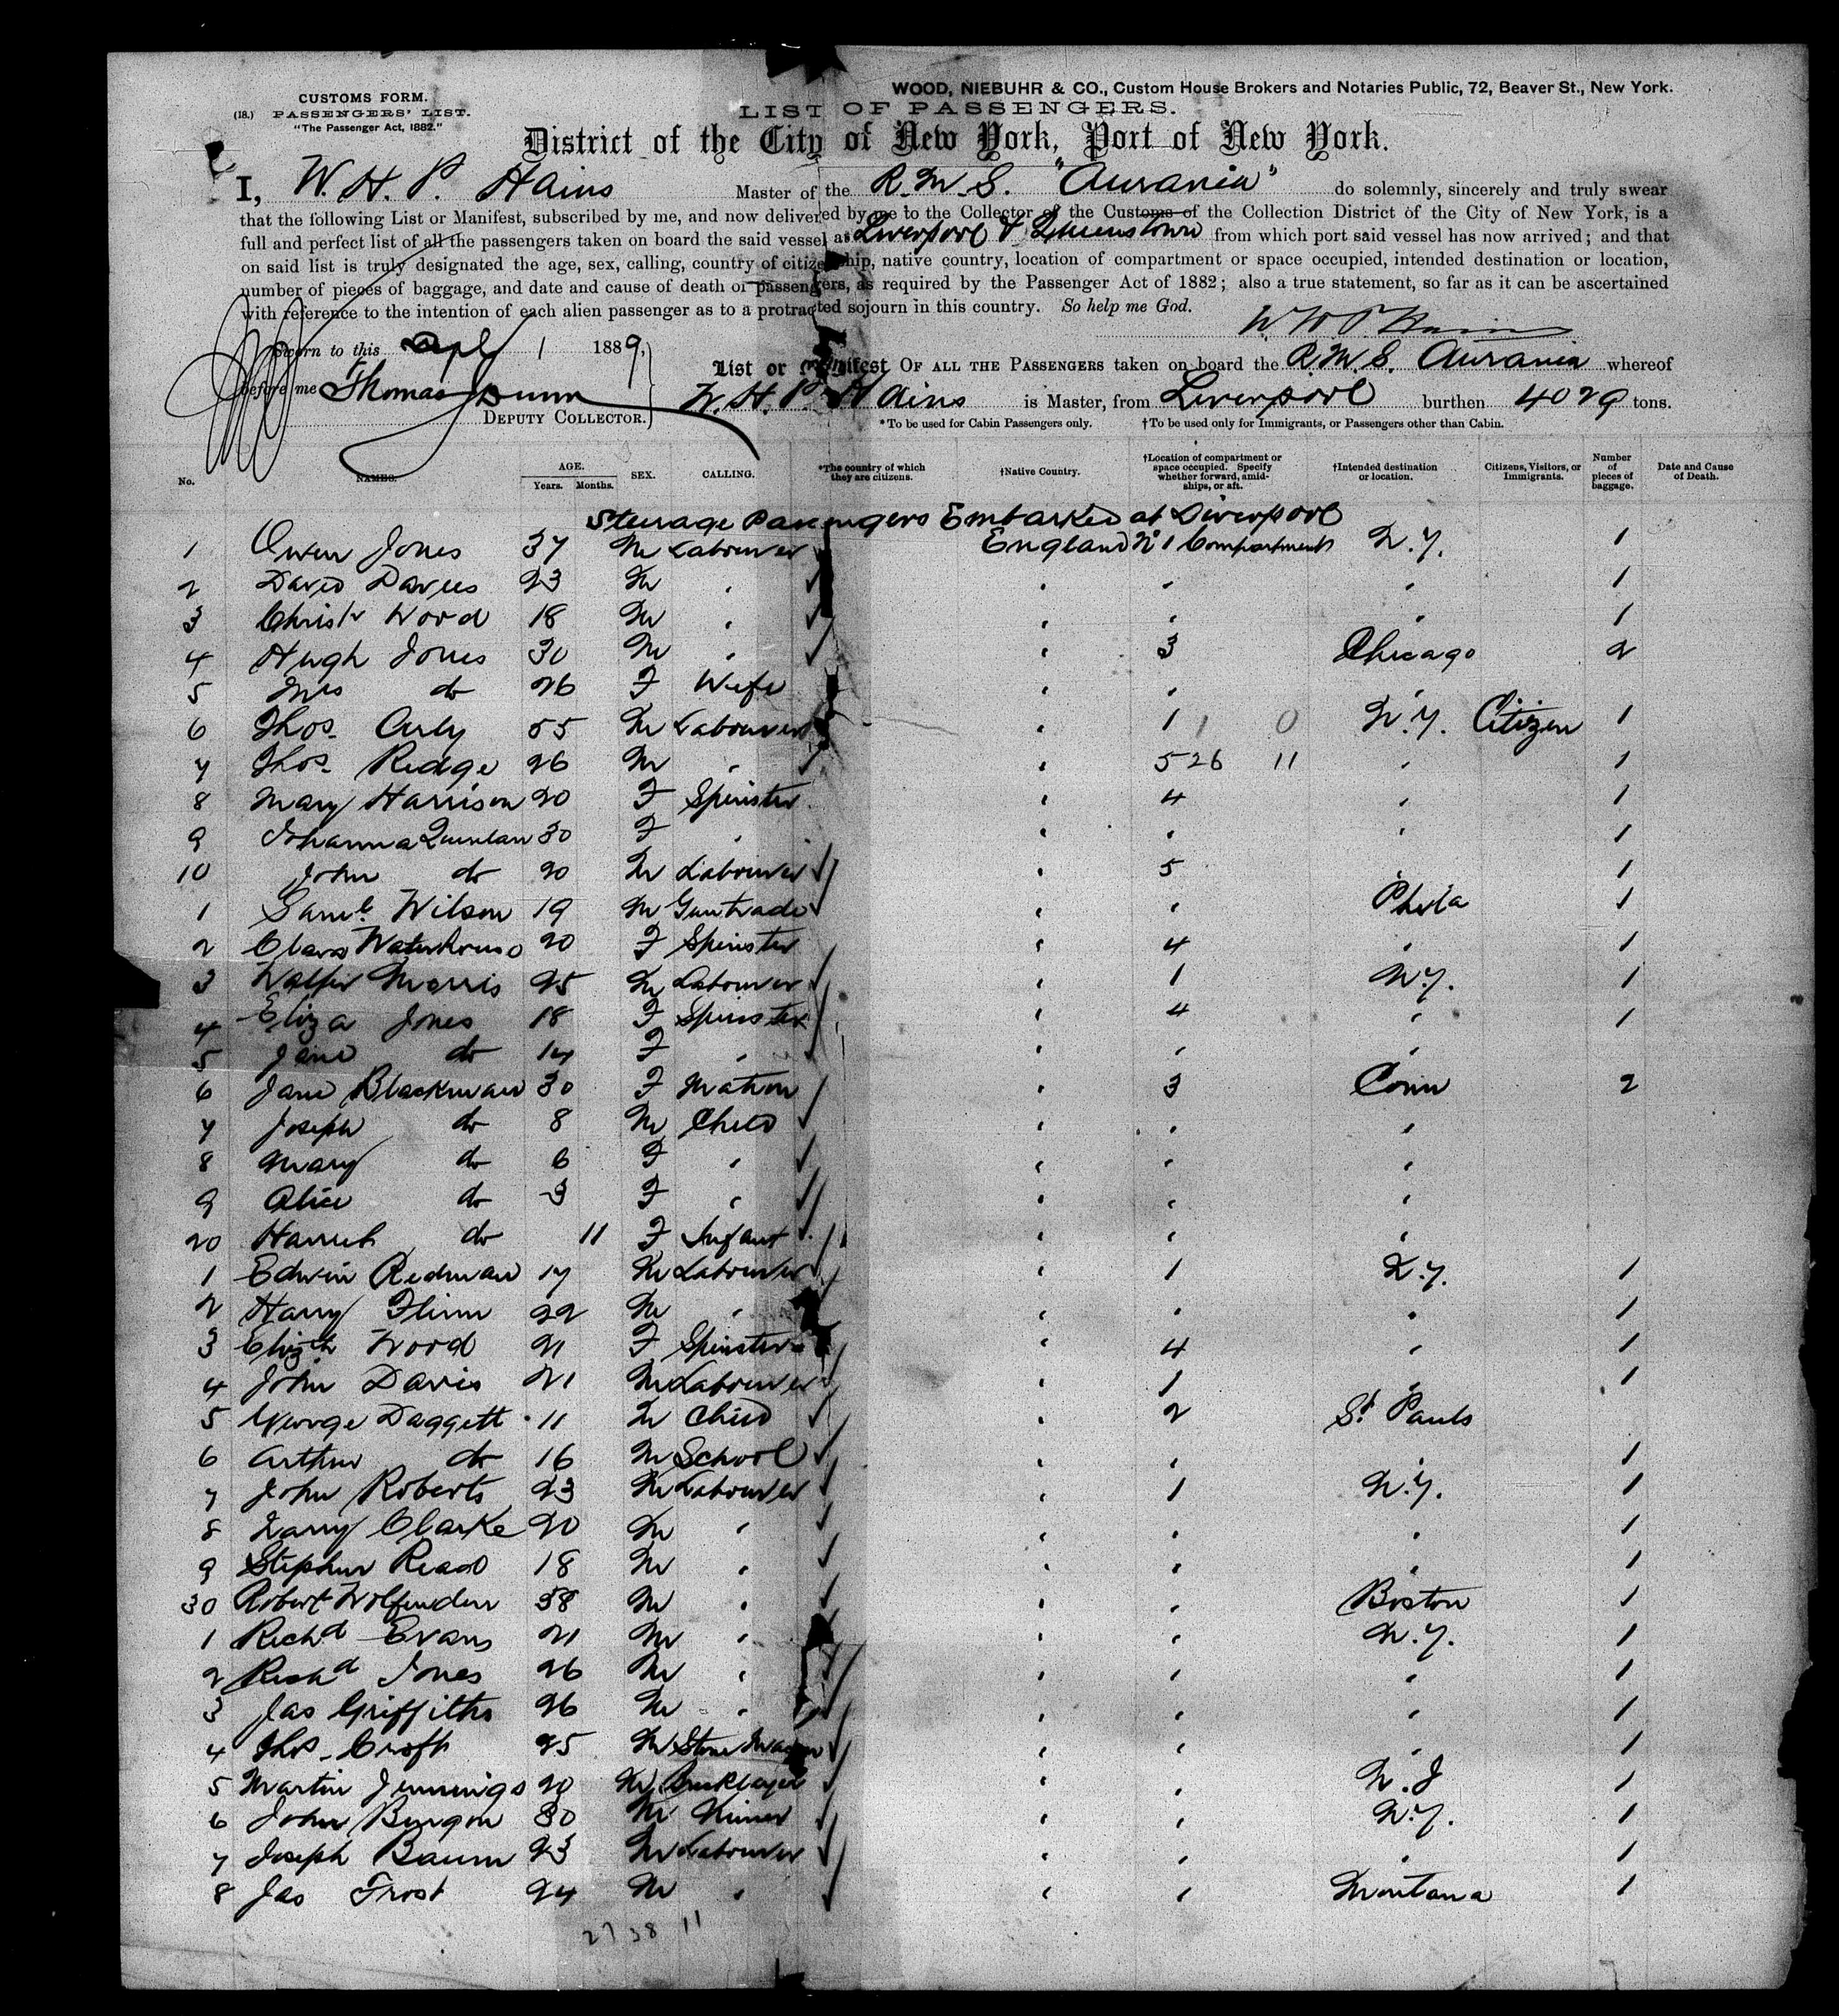 CUSTOMS FORM.
(18.) PASSENGERS' LIST.
"The Passenger Act, 1882."
WOOD, NIEBUHR & CO., Custom House Brokers and Notaries Public, 72, Beaver St., New York.
LIST OF PASSENGERS.
District of the City of New York, Port of New York.
I, W. H. P. Hains Master of the R.M.S. "Aurania" do solemnly, sincerely and truly swear
that the following List or Manifest, subscribed by me, and now delivered by me to the Collector of the Customs of the Collection District of the City of New York, is a
full and perfect list of all the passengers taken on board the said vessel at Liverpool & Queenstown from which port said vessel has now arrived; and that
on said list is truly designated the age, sex, calling, country of citizenship, native country, location of compartment or space occupied, intended destination or location,
number of pieces of baggage, and date and cause of death of passengers, as required by the Passenger Act of 1882; also a true statement, so far as it can be ascertained
with reference to the intention of each alien passenger as to a protracted sojourn in this country. So help me God.
W H P Hains
Sworn to this Apl 1 1889,
before me Thomas Dunn
DEPUTY COLLECTOR.
List or Manifest OF ALL THE PASSENGERS taken on board the R.M.S. Aurania whereof
W. H. P. Hains is Master, from Liverpool burthen 4029 tons.
*To be used for Cabin Passengers only. †To be used only for Immigrants, or Passengers other than Cabin.
No. NAMES. AGE. Years. Months. SEX. CALLING. *The country of which they are citizens. †Native Country. †Location of compartment or space occupied. Specify whether forward, amid-ships, or aft. †Intended destination or location. Citizens, Visitors, or Immigrants. Number of pieces of baggage. Date and Cause of Death.
Steerage Passengers Embarked at Liverpool
1 Owen Jones 37 M Labourer England No 1 Compartment N.Y. 1
2 David Davies 23 M " " " " 1
3 Christr Wood 18 M " " " " 1
4 Hugh Jones 30 M " " 3 Chicago 2
5 Mrs do 26 F Wife " " "
6 Thos. Curly 55 M Labourer " 1 1 0 N.Y. Citizen 1
7 Thos. Ridge 26 M " " 5 26 11 " 1
8 Mary Harrison 20 F Spinster " 4 " 1
9 Johanna Quinlan 30 F " " " " 1
10 John do 20 M Labourer " 5 1
1 Saml. Wilson 19 M Gun trade " " Phila 1
2 Clara Waterhouse 20 F Spinster " 4 " 1
3 Walter Morris 25 M Labourer " 1 N.Y. 1
4 Eliza Jones 18 F Spinster " 4 " 1
5 Jane do 14 F " " " "
6 Jane Blackman 30 F Matron " 3 Conn 2
7 Joseph do 8 M Child " " "
8 Mary do 6 F " " " "
9 Alice do 3 F " " " "
20 Harriet do 11 F Infant " " "
1 Edwin Redman 17 M Labourer " 1 N.Y. 1
2 Harry Flinn 22 M " " " " 1
3 Elizth Wood 21 F Spinster " 4 " 1
4 John Davis 21 M Labourer " 1 " 1
5 George Daggett 11 M Child " 2 St. Pauls
6 Arthur do 16 M School " " " 1
7 John Roberts 23 M Labourer " 1 N.Y. 1
8 Harry Clarke 20 M " " " " 1
9 Stephen Read 18 M " " " " 1
30 Robert Wolfenden 38 M " " " Boston 1
1 Richd Evans 21 M " " " N.Y. 1
2 Richd Jones 26 M " " " " 1
3 Jas Griffiths 26 M " " " " 1
4 Thos. Croft 25 M Stone Mason " " " 1
5 Martin Jennings 20 M Bricklayer " " N.J 1
6 John 30 M Miner " " N.Y. 1
7 Joseph Baum 23 M Labourer " " " 1
8 Jas Frost 24 M " " " Montana 1
27 38 11